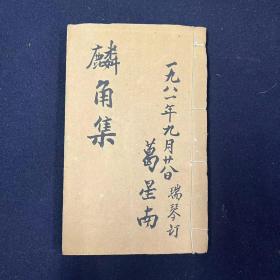 麟角集
一九八一年九月廿八日
瑞琴订
葛星南